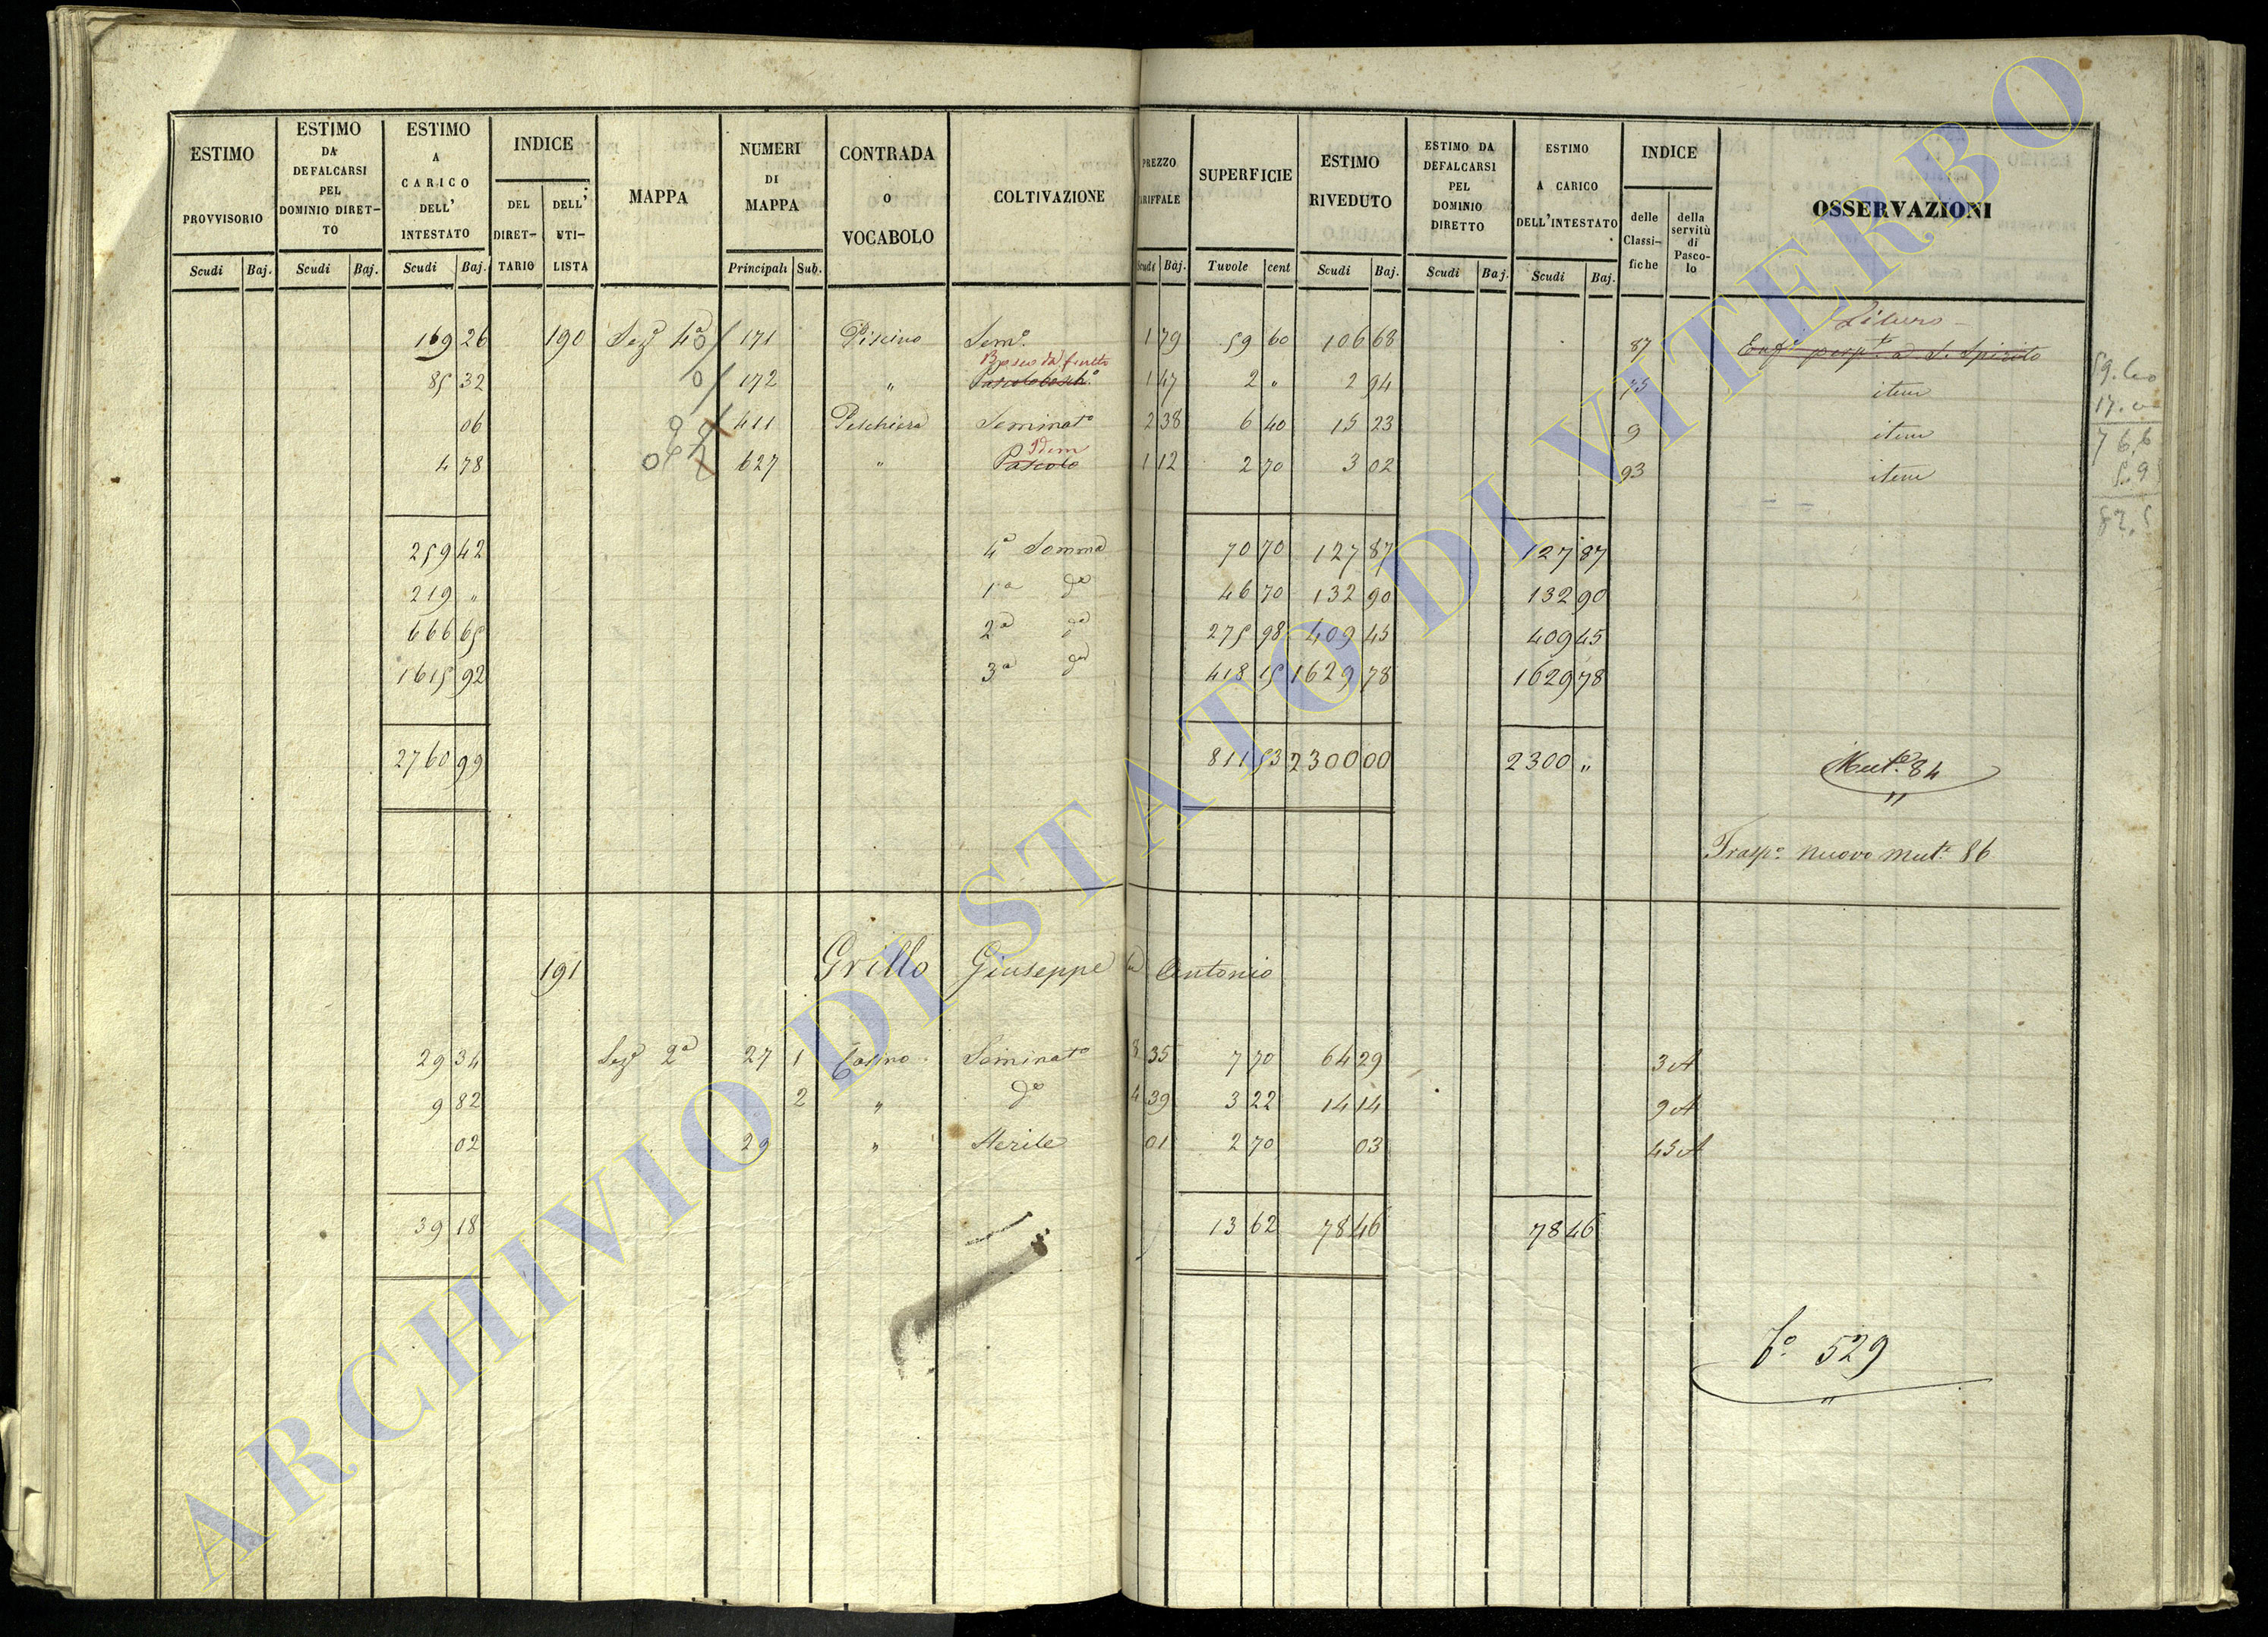 ESTIMO PROVVISORIO Scudi Baj.
ESTIMO DA DEFALCARSI PEL DOMINIO DIRET-TO Scudi Baj.
ESTIMO A CARICO DELL' INTESTATO Scudi Baj.
INDICE DEL DIRET-TARIO DELL' UTI-LISTA
MAPPA
NUMERI DI MAPPA Principali Sub.
CONTRADA o VOCABOLO
COLTIVAZIONE
PREZZO TARIFFALE Scudi Baj.
SUPERFICIE Tavole cent
ESTIMO RIVEDUTO Scudi Baj.
ESTIMO DA DEFALCARSI PEL DOMINIO DIRETTO Scudi Baj.
ESTIMO A CARICO DELL'INTESTATO Scudi Baj.
INDICE delle Classi-fiche della servitù di Pasco-lo
OSSERVAZIONI
Libero
169 26 190 Sez.e 4a 171 Piscino Sem.o 1 79 59 60 106 68 87 Enf.a perp.a a S. Spirito
Bosco da frutto
85 32 172 " Pascolo bosch.o 1 47 2 " 2 94 75 item
06 411 Peschiera Seminato 2 38 6 40 15 23 9 item
Idem
4 78 627 " Pascolo 1 12 2 70 3 02 93 item
259 42 4a Somma 70 70 127 87 127 87
219 " 1a do 46 70 132 90 132 90
666 65 2a do 275 98 409 45 409 45
1615 92 3a do 418 15 1629 78 1629 78
2760 99 811 53 2300 00 2300 " Mut.e 84
Trasp.o nuovo mut.e 86
191 Grillo Giuseppe di Antonio
29 34 Sez.e 2a 27 1 Casino Seminato 8 35 7 70 64 29 3 A
9 82 2 " do 4 39 3 22 14 14 9 A
02 29 " Sterile 01 2 70 03 45 A
39 18 13 62 78 46 78 46
fo. 529
76,6
82,5
ARCHIVIO DI STATO DI VITERBO